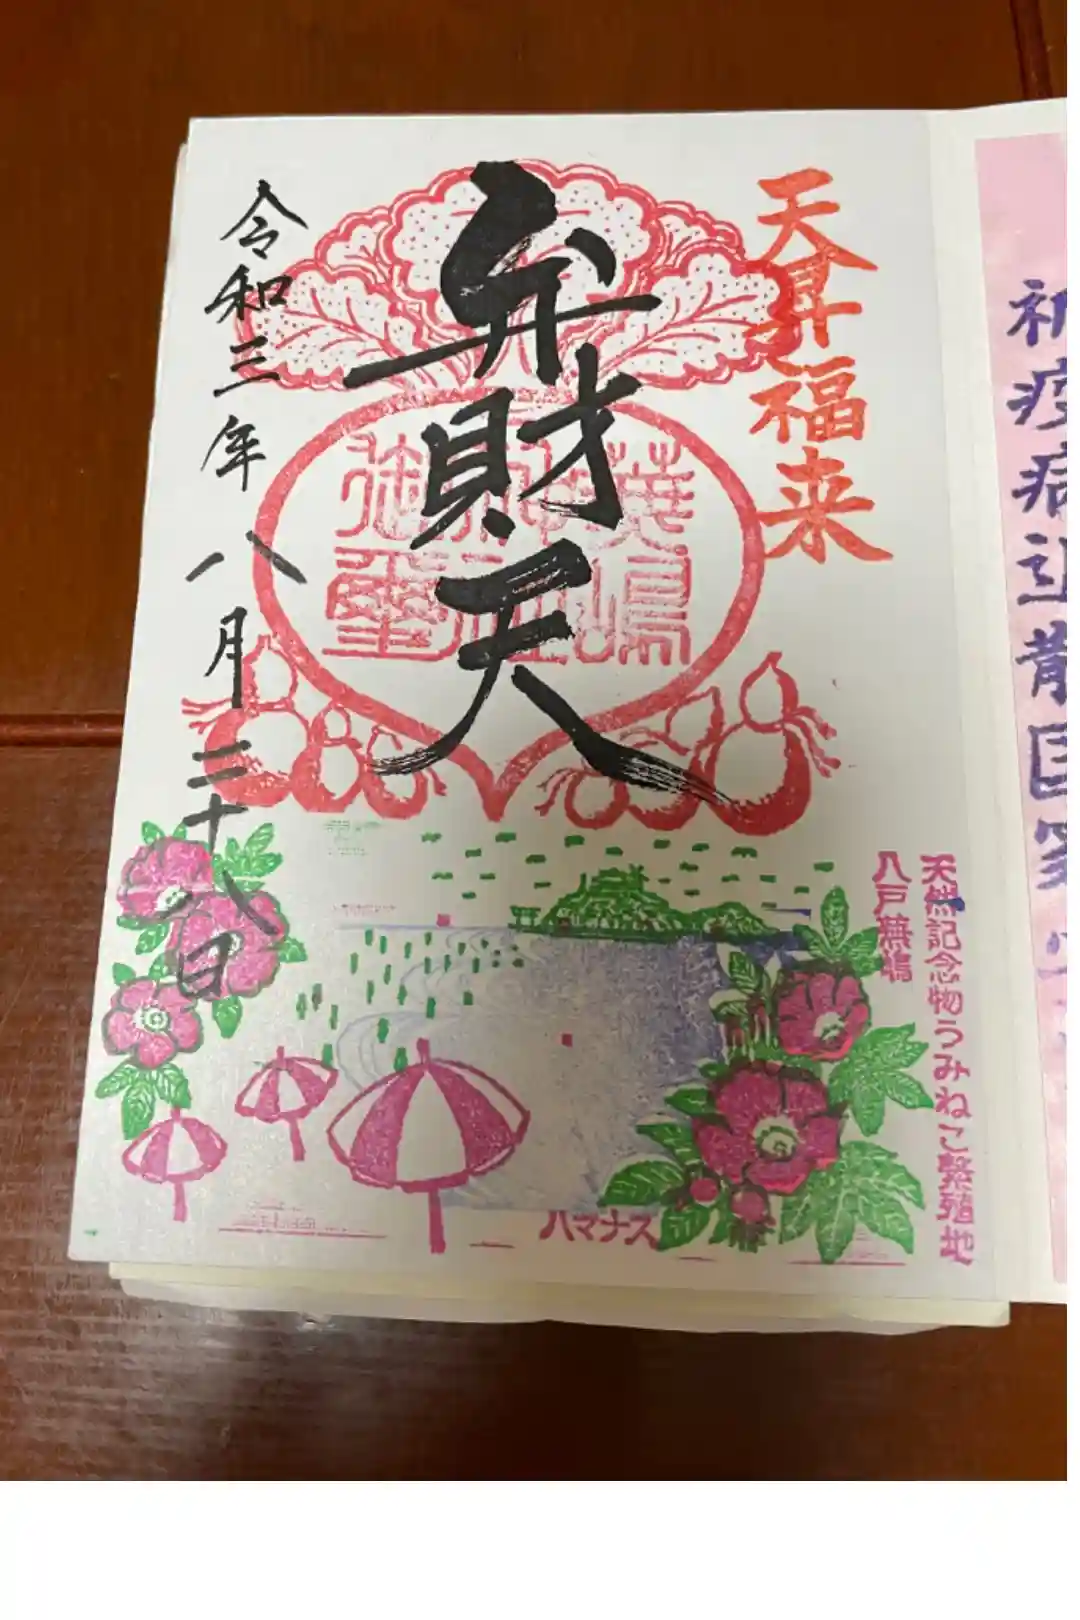 祈疫病退散国家
天昇福来
弁財天
蕪嶋神社御璽
令和三年八月二十八日
天然記念物うみねこ繁殖地
八戸蕪嶋
ハマナス